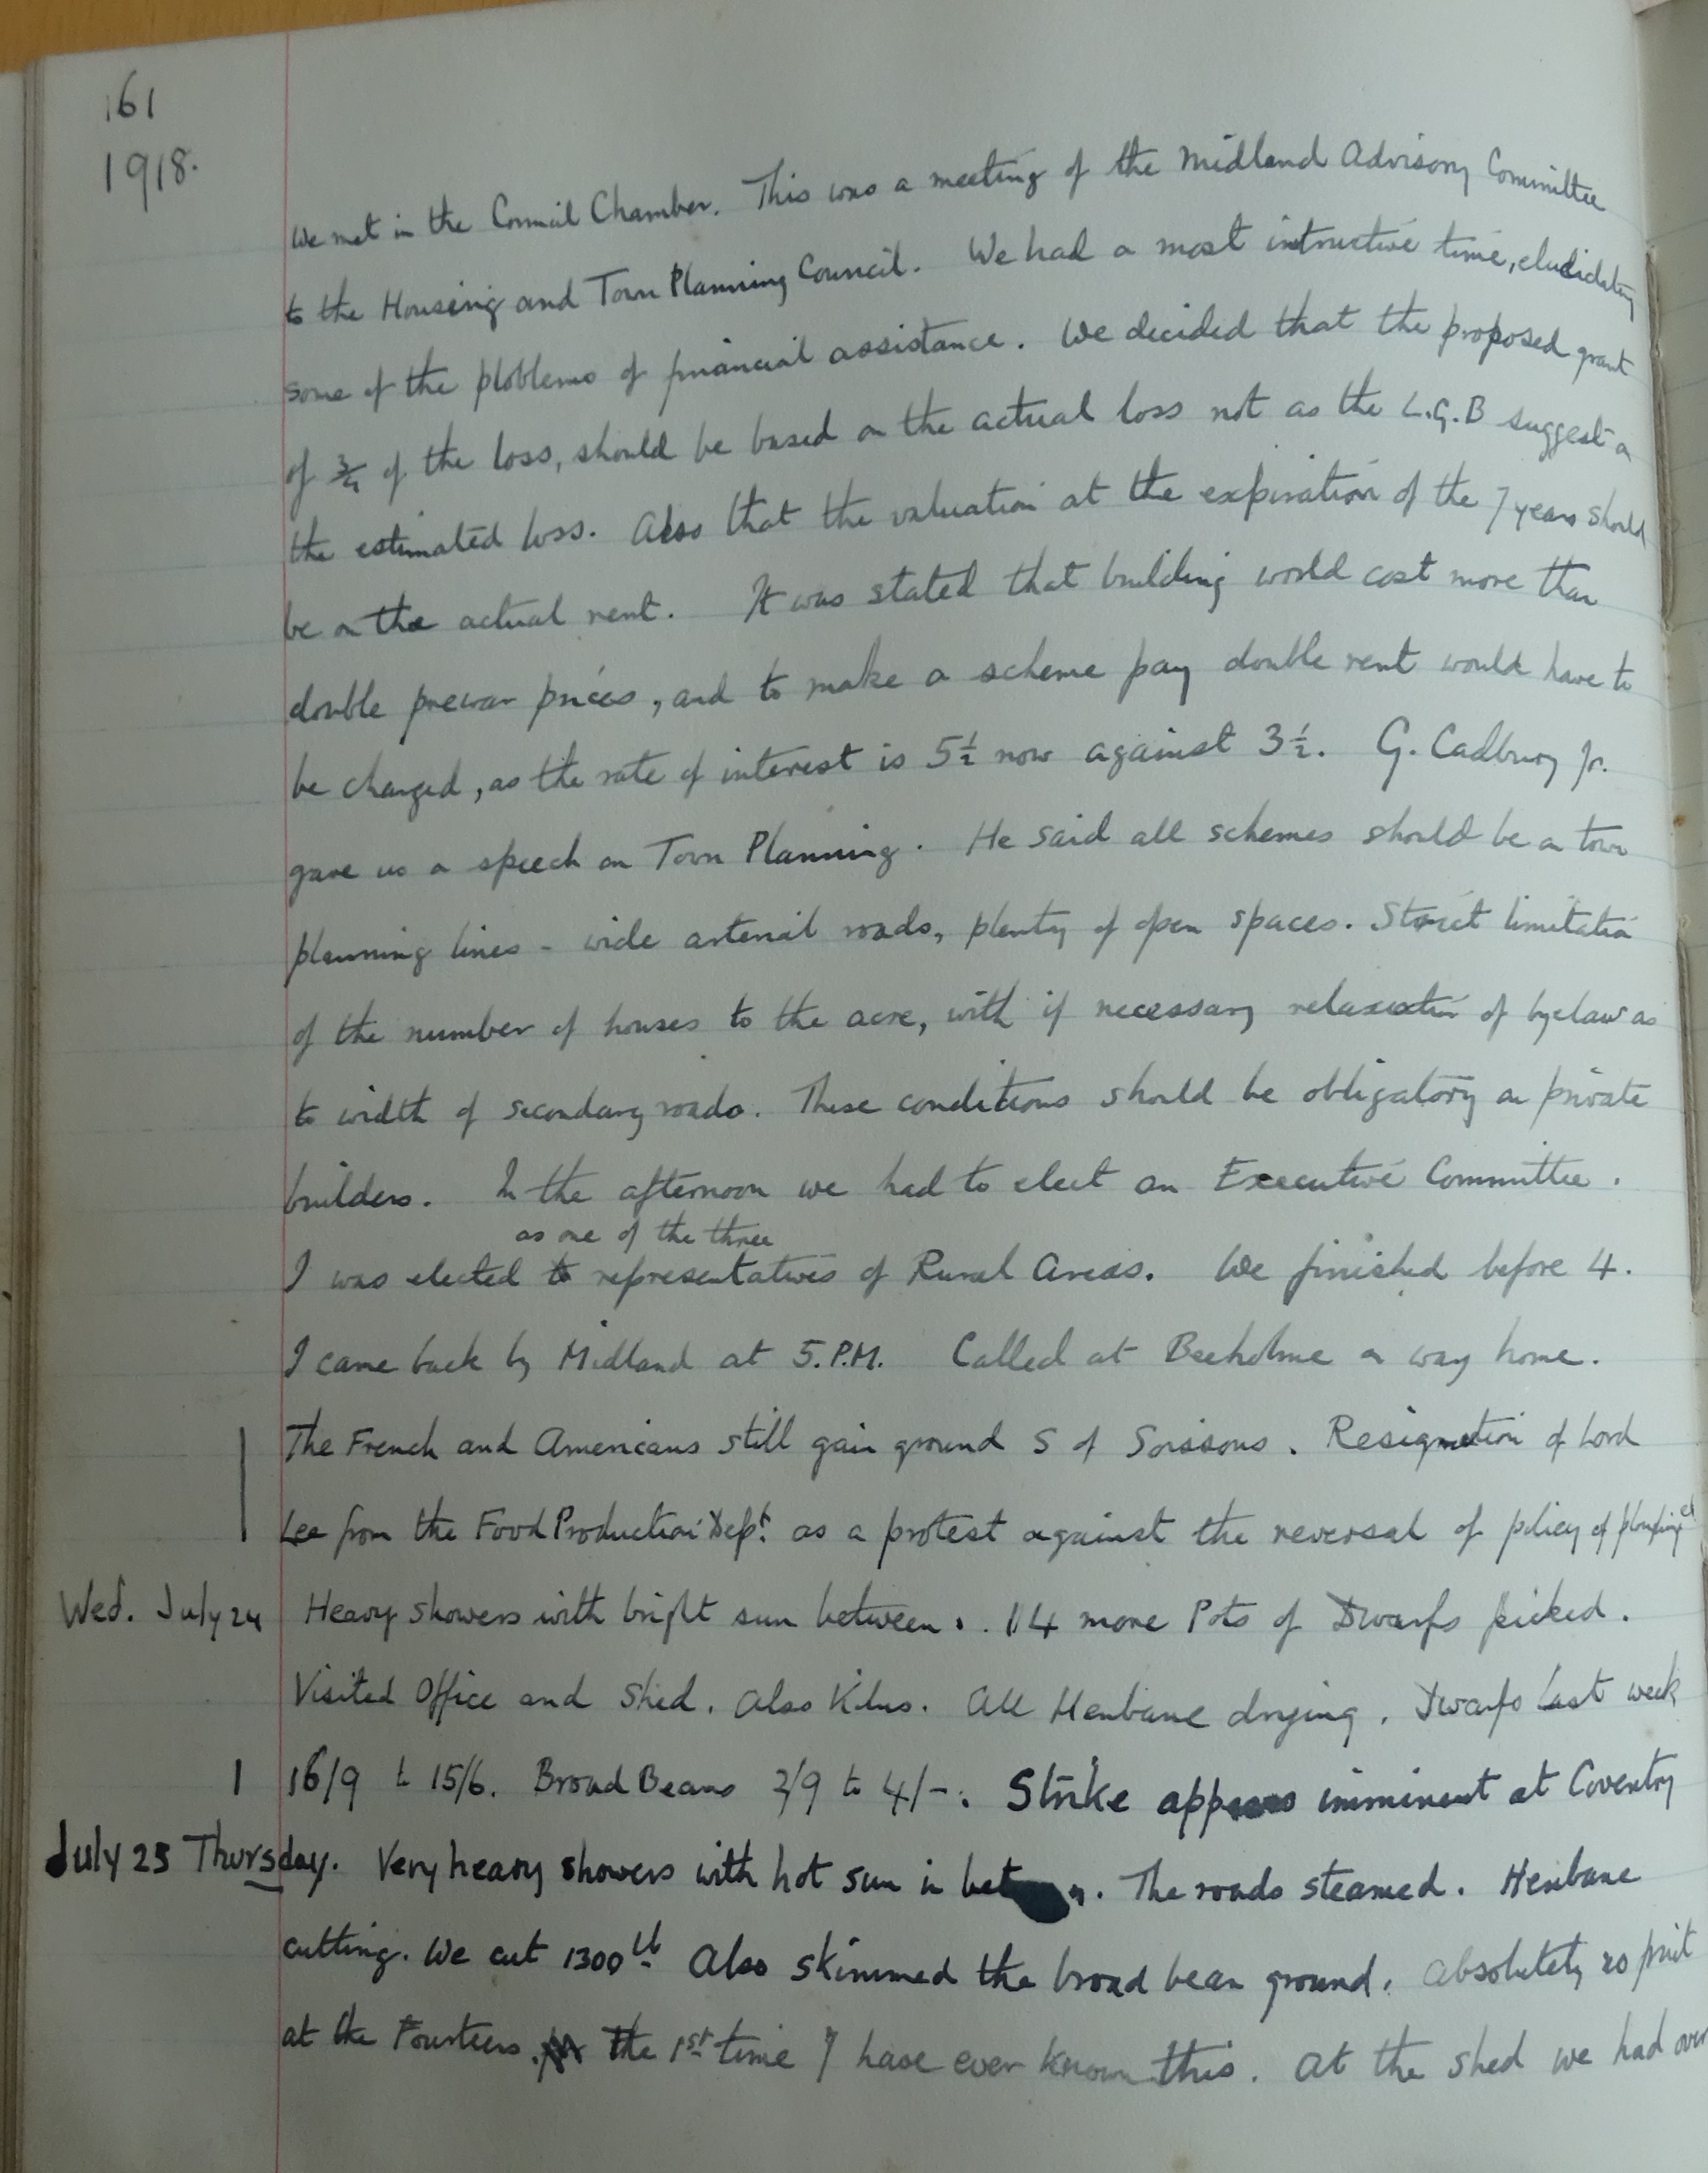 161
1918.
We met in the Council Chamber. This was a meeting of the Midland Advisory Committee
to the Housing and Town Planning Council. We had a most intructive time, elucidating
some of the ploblems of financial assistance. We decided that the proposed grant
of 3/4 of the loss, should be based on the actual loss not as the L.G.B suggest on
the estimated loss. Also that the valuation at the expiration of the 7 years should
be on the actual rent. It was stated that building world cost more than
double prewar prices, and to make a scheme pay double rent would have to
be charged, as the rate of interest is 5½ now against 3½. G. Cadbury Jr.
gave us a speech on Town Planning. He said all schemes should be on town
planning lines - wide arterial roads, plenty of open spaces. Strict limitation
of the number of houses to the acre, with if necessary relaxation of byelaw as
to width of secondary roads. These conditions should be obligatory on private
builders. In the afternoon we had to elect an Executive Committee.
as one of the three
I was elected to representatives of Rural Areas. We finished before 4.
I came back by Midland at 5.P.M. Called at Beeholme on way home.
The French and Americans still gain ground S of Soissons. Resignation of Lord
Lee from the Food Production Dept. as a protest against the reversal of policy of
Wed. July 24 Heavy showers with bright sun between. 114 more Pots of Dwarfs picked.
Visited Office and Shed. Also Kilns. All Henbane drying. Dwarfs last week
16/9 to 15/6. Broad Beans 2/9 to 4/-. Strike appears imminent at Coventry
July 25 Thursday. Very heavy showers with hot sun in between. The roads steamed. Henbane
cutting. We cut 1300 lb Also skimmed the broad bean ground. Absolutely no fruit
at the Fourteens. The 1st time I have ever known this. At the shed we had over